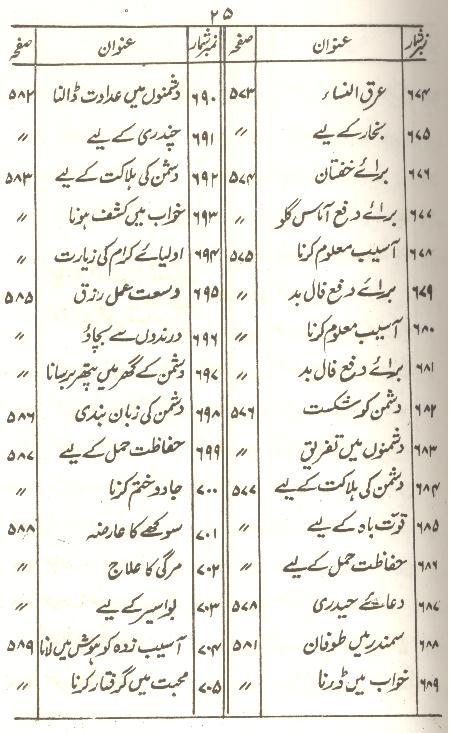 ۲۵
نمبر شمار عنوان صفحہ نمبر شمار عنوان صفحہ
۶۷۴ عرق النساء ۵۷۳ ۶۹۰ دشمنوں میں عداوت ڈالنا ۵۸۲
۶۷۵ بخار کے لیے ״ ۶۹۱ چندری کے لیے ״
۶۷۶ برائے خفتان ۵۷۴ ۶۹۲ دشمن کی ہلاکت کے لیے ۵۸۳
۶۷۷ برائے دفع آماس گلو ״ ۶۹۳ خواب میں کشف ہونا ״
۶۷۸ آسیب معلوم کرنا ۵۷۵ ۶۹۴ اولیائے کرام کی زیارت ״
۶۷۹ برائے دفع فال بد ״ ۶۹۵ وسعت عمل رزق ۵۸۵
۶۸۰ آسیب معلوم کرنا ״ ۶۹۶ درندوں سے بچاؤ ״
۶۸۱ برائے دفع فال بد ״ ۶۹۷ دشمن کے گھر میں پتھر برسانا ״
۶۸۲ دشمن کو شکست ۵۷۶ ۶۹۸ دشمن کی زبان بندی ۵۸۶
۶۸۳ دشمنوں میں تفریق ״ ۶۹۹ حفاظت حمل کے لیے ۵۸۷
۶۸۴ دشمن کی ہلاکت کے لیے ۵۷۷ ۷۰۰ جادو ختم کرنا ״
۶۸۵ قوت باہ کے لیے ״ ۷۰۱ سوکھے کا عارضہ ۵۸۸
۶۸۶ حفاظت حمل کے لیے ״ ۷۰۲ مرگی کا علاج ״
۶۸۷ دعائے حیدری ۵۷۸ ۷۰۳ بواسیر کے لیے ״
۶۸۸ سمندر میں طوفان ۵۸۱ ۷۰۴ آسیب زدہ کو ہوش میں لانا ۵۸۹
۶۸۹ خواب میں ڈرنا ״ ۷۰۵ محبت میں گرفتار کرنا ״